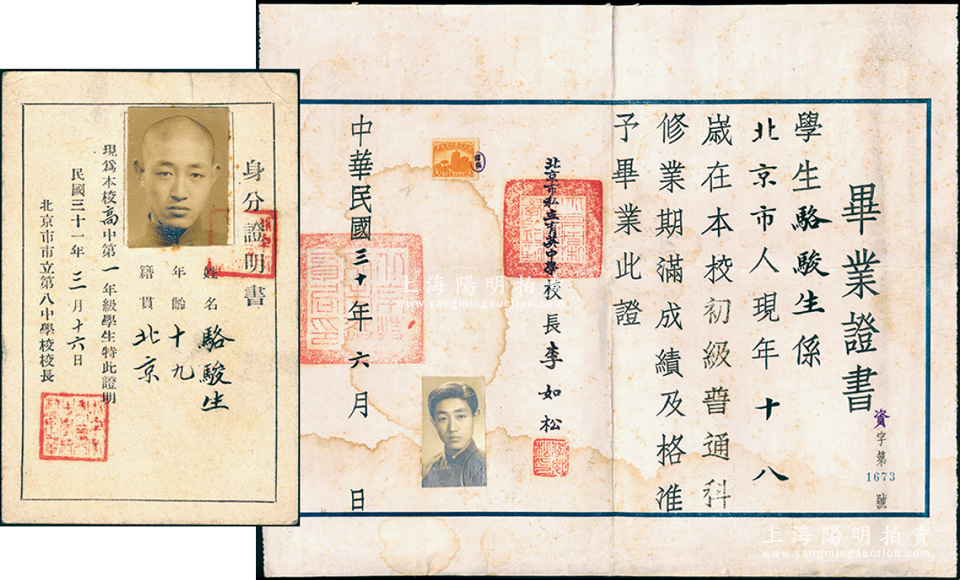 畢業證書
資字第1673號
學生駱駿生係
北京市人現年十八
歲在本校初級普通科
修業期滿成績及格准
予畢業此證
北京市私立育英中學校長李如松
中華民國三十年六月 日
身分證明書
姓名 駱駿生
年齡 十九
籍貫 北京
現爲本校高中第一年級學生特此證明
民國三十一年三月十六日
北京市市立第八中學校校長
上海陽明拍賣
www.yangmingauction.com
上海陽明拍賣
www.yangmingauction.com